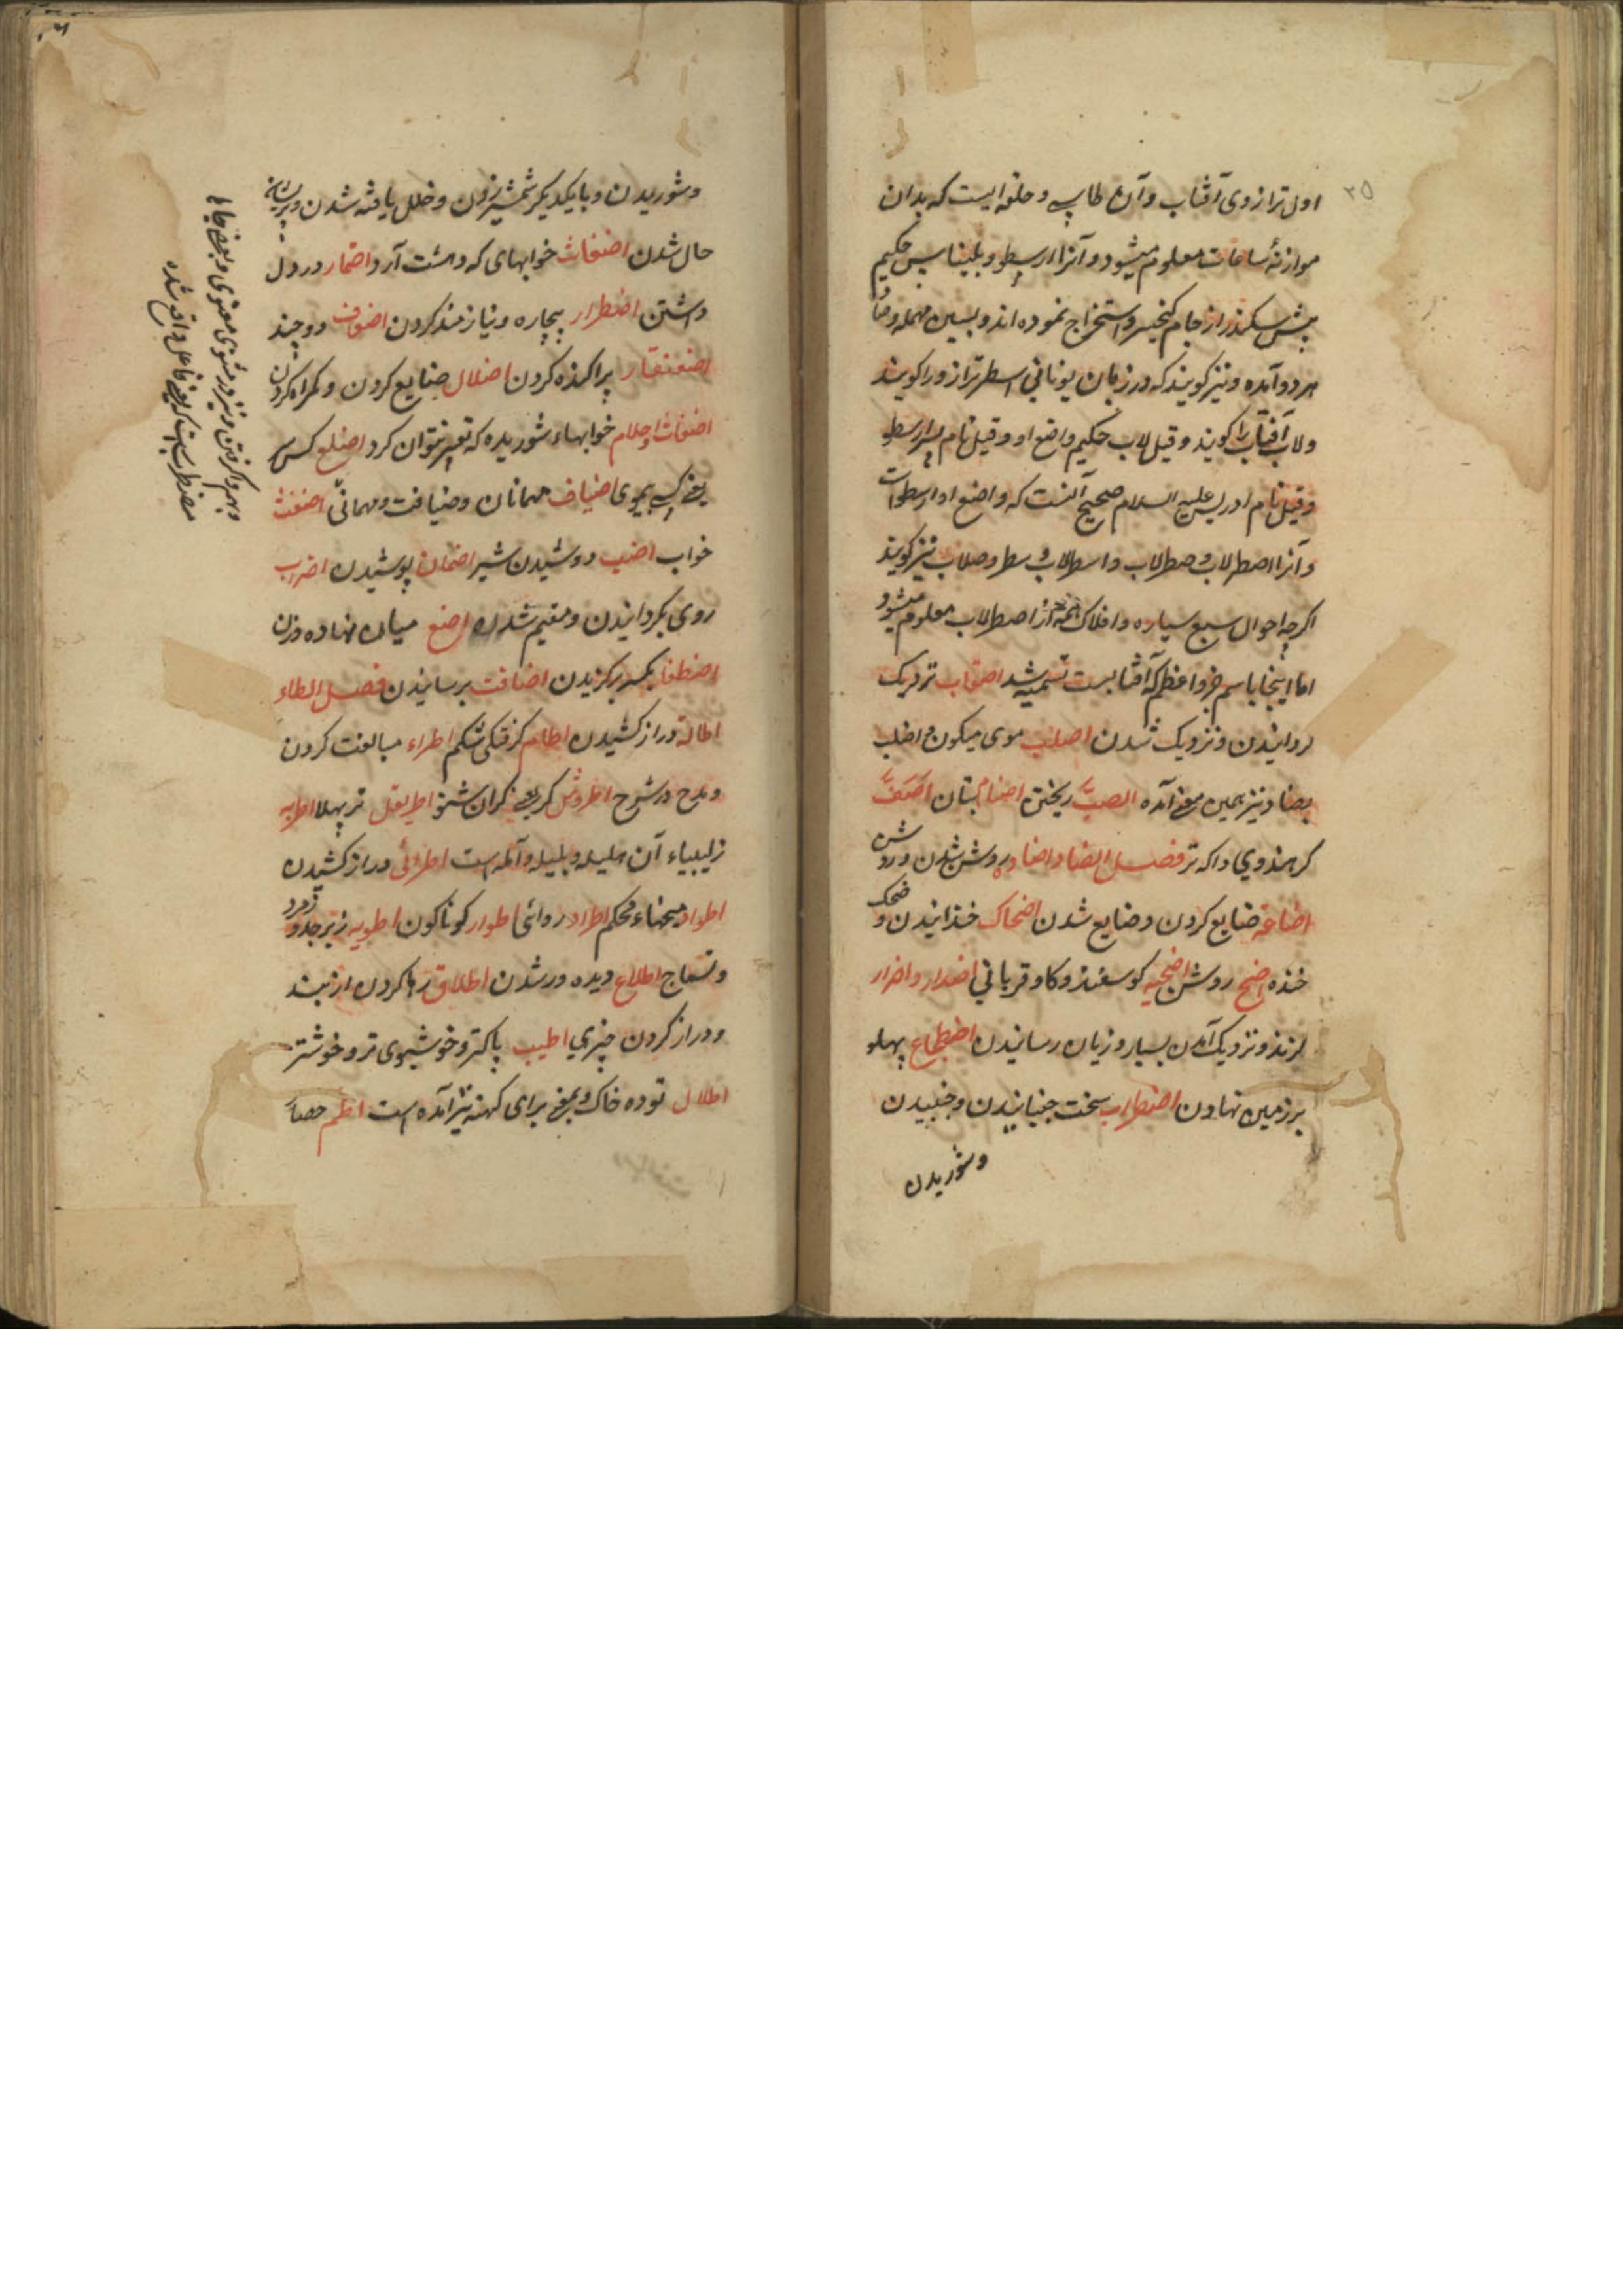 ۲۵
اول ترازوی آفتاب و آن طاسی و حلقه ایست که بدان
موازنهٔ ساعات معلوم میشود و آنرا ارسطو و بلیناس حکیم
پیش سکندر از جام کیخسرو استخراج نموده اند و بسین مهمله و صاد
هر دو آمده و نیز کویند که در زبان یونانی اسطر ترازو را کویند
ولاب آفتاب را کویند و قیل لاب حکیم واضع او و قیل نام پسر ارسطو
و قیل نام ادریس علیه السلام صحیح آنست که واضع او ارسطو است
و آنرا اصطرلاب و صطرلاب و اسطرلاب و سطر و صلاب نیز کویند
اکرچه احوال سبع سیاره و افلاک همه از اصطرلاب معلوم میشود
اما اینجا باسم جزو اعظم که آفتابست تسمیه شد اصقاب نزدیک
کردانیدن و نزدیک شدن اصلب موی میکون و اضلب
بضاد نیز بهمین معنی آمده الصبّ ریختن اصنام بتان اصَفّ
کر هندوی داکه تر فصل الضاد اضاده روشن شدن و روشن
اضاعه ضایع کردن و ضایع شدن اضحاک خندانیدن و ضحک
خنده اضح روشن اضحیه کوسفند و کاو قربانی اضدار و اضرار
کزند و نزدیک آمدن بسیار و زیان رسانیدن اضطجاع پهلو
بر زمین نهادن اضطراب سخت جنبانیدن و جنبیدن
و شوریدن
و شوریدن و با یکدیکر شمشیر زدن و خلل یافته شدن و پریشان
حال شدن اضغاث خوابهای که دهشت آرد اضمار در دل
داشتن اضطرار بیچاره و نیازمند کردن اضعاف دو چند
اضعنقار پراکنده کردن اضلال ضایع کردن و کمراه کردن
اضغاث احلام خوابهاء شوریده که تعبیر نتوان کرد اضلع کس
یعنی کسی بموی اضیاف مهمانان و ضیافت و مهمانی اضغث
خواب اضب دوشیدن شیر اضمان پوشیدن اضراب
روی بکردانیدن و مقیم شدن اضع میان نهاده وزن
اضطفا بکسر برکزیدن اضافت برسانیدن فصل الطاء
اطاله دراز کشیدن اطام کرفتکی شکم اطراء مبالغت کردن
و مدح در شرح اطروش کر یعنی کران شنو اطریفل تر پهلا اطربه
زلیبیاء آن هلیله و بلیله و آمله است اطرائی دراز کشیدن
اطواد میخهاء محکم اطراد روائی اطوار کوناکون اطویه زبرجد و زمرد
و نساج اطلاع دیده ور شدن اطلاق رها کردن از بند
و دراز کردن چیزی اطیب پاکتر و خوشبوی تر و خوشتر
اطلال توده خاک و بمعنی برای کهنه نیز آمده است اطم حصار
و بهم واکرفتن و نیز در مثنوی معنوی و بعضی جا
مضطرب است که بمعنی فاعل واقع شده